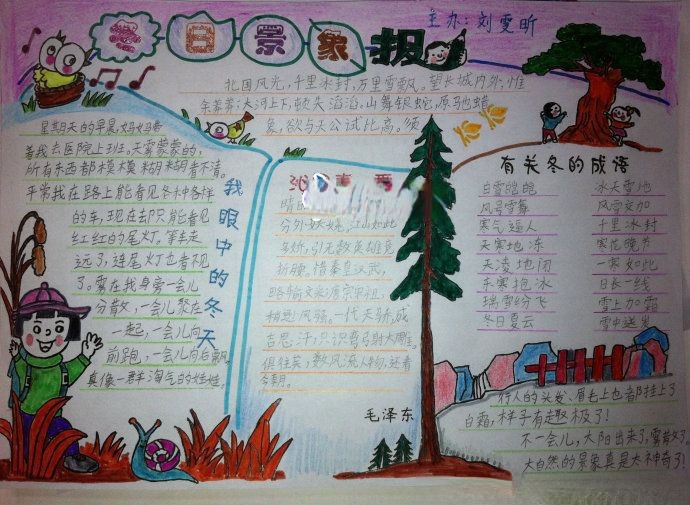 冬日景象报
主办：刘雯昕
北国风光，千里冰封，万里雪飘。望长城内外，惟
余莽莽；大河上下，顿失滔滔。山舞银蛇，原驰蜡
象，欲与天公试比高。须
晴
分外妖娆。江山如此
多娇，引无数英雄竞
折腰。惜秦皇汉武，
略输文采；唐宗宋祖，
稍逊风骚。一代天骄，成
吉思汗，只识弯弓射大雕。
俱往矣，数风流人物，还看
今朝。
毛泽东
我眼中的冬天
星期天的早晨，妈妈带
着我去医院上班。天雾蒙蒙的，
所有东西都模模糊糊看不清。
平常我在路上能看见各种各样
的车，现在却只能看见
红红的尾灯。等车走
远了，连尾灯也看不见
了。雾在我身旁一会儿
分散，一会儿聚在
一起，一会儿向
前跑，一会儿向后飘，
真像一群淘气的娃娃。
有关冬的成语
白雪皑皑 冰天雪地
风号雪舞 风雪交加
寒气逼人 千里冰封
天寒地冻 寒花晚节
天凌地闭 一寒如此
东寒抱冰 日长一线
瑞雪纷飞 雪上加霜
冬日夏云 雪中送炭
行人的头发、眉毛上也都挂上了
白霜，样子有趣极了！
不一会儿，太阳出来了，雾散了，
大自然的景象真是太神奇了！